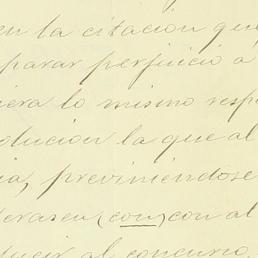 en la citacion que
parar perjuicio á
iera lo mismo resp
olucion la que al
ia, previniéndose
eraseu (con) con al
ducir al concurso,